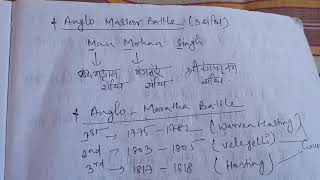 * Anglo Massorr Battle (3 संधि)
Man Mohan Singh
मद्रास मंगलौर श्रीरंगपट्टनम
संधि संधि संधि
* Anglo-Maratha Battle
1st → 1775 - 1782 (Warren Hasting)
2nd → 1803 - 1805 (Velejelli)
3rd → 1817 - 1818 (Hasting)